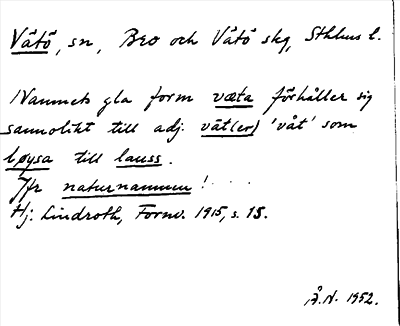 Vätö, sn, Bro och Vätö skg, Sthlms l.
Namnets gla form væta förhåller sig
sannolikt till adj. våt(er) 'våt' som
løysa till lauss.
Jfr naturnamnen! . . .
Hj. Lindroth, Fornv. 1915, s. 15.
Å.N. 1952.